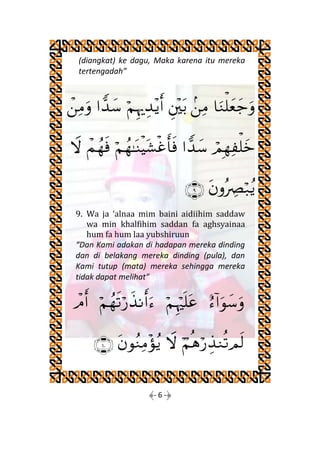 (diangkat) ke dagu, Maka karena itu mereka
tertengadah”
وَجَعَلْنَا مِنۢ بَيْنِ أَيْدِيهِمْ سَدًّا وَمِنْ
خَلْفِهِمْ سَدًّا فَأَغْشَيْنَـٰهُمْ فَهُمْ لَا
يُبْصِرُونَ ۝٩
9. Wa ja ‘alnaa mim baini aidiihim saddaw
wa min khalfihim saddan fa aghsyainaa
hum fa hum laa yubshiruun
“Dan Kami adakan di hadapan mereka dinding
dan di belakang mereka dinding (pula), dan
Kami tutup (mata) mereka sehingga mereka
tidak dapat melihat”
وَسَوَآءٌ عَلَيْهِمْ ءَأَنذَرْتَهُمْ أَمْ
لَمْ تُنذِرْهُمْ لَا يُؤْمِنُونَ ۝١٠
6